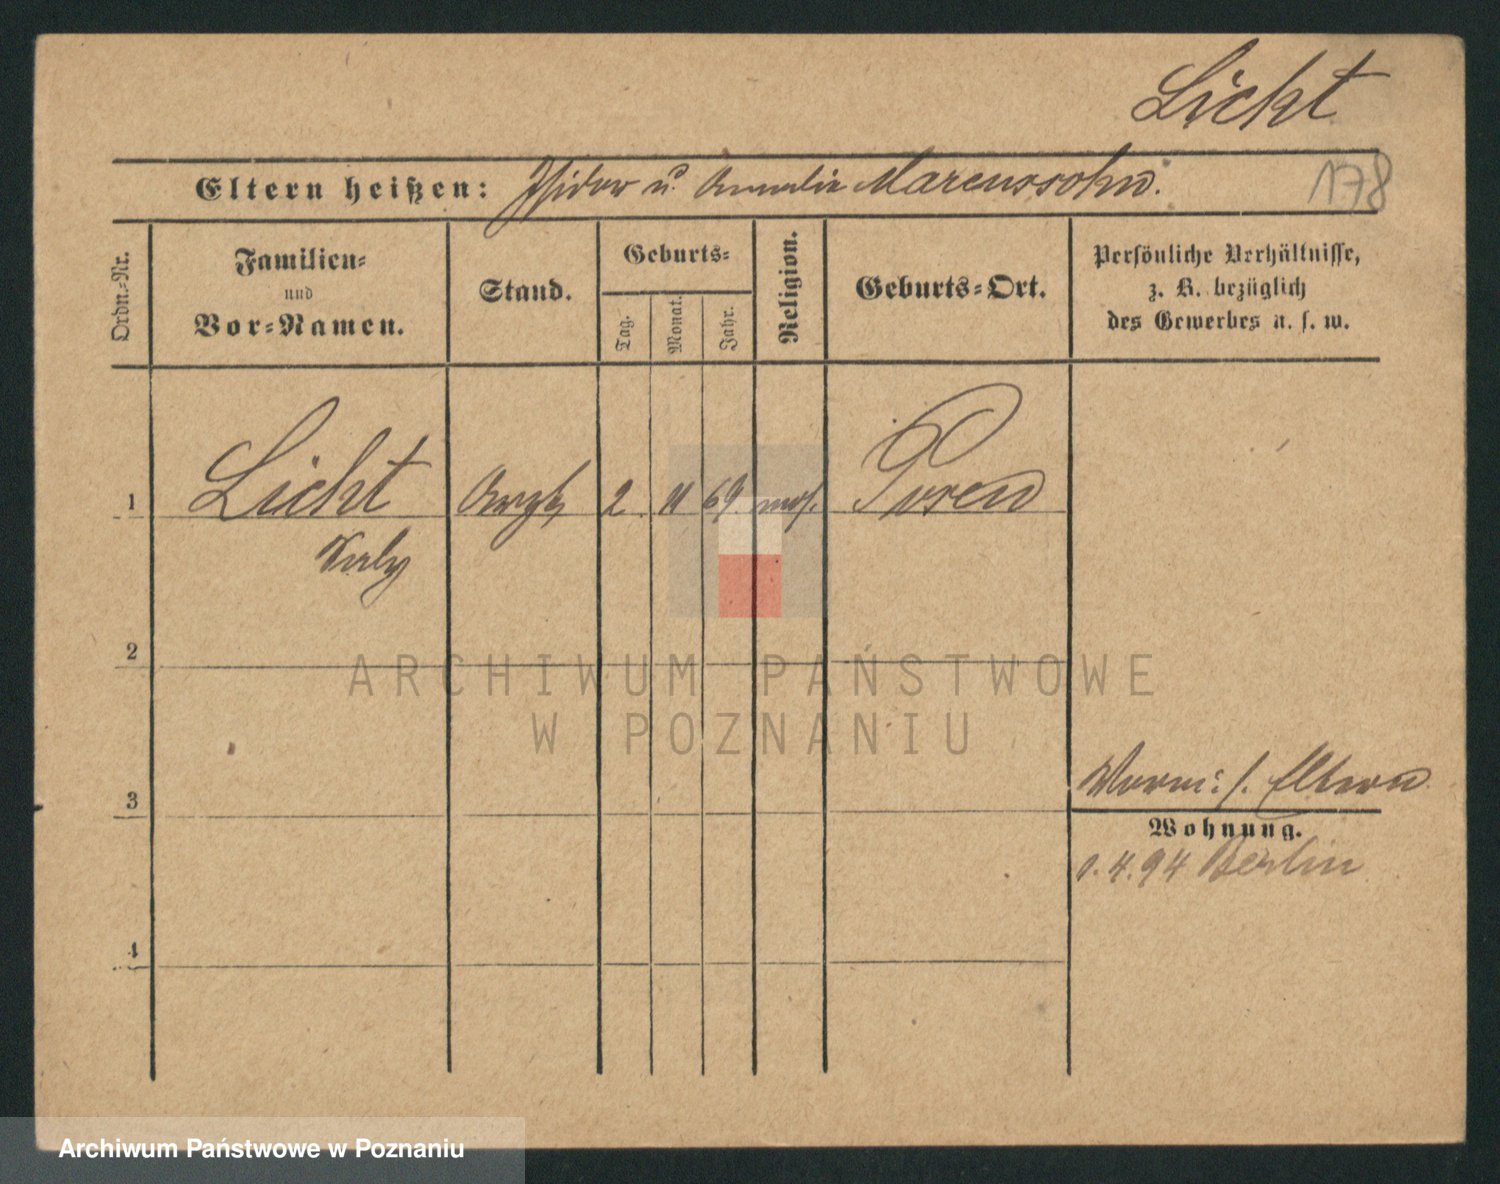 Licht
Eltern heißen: Isidor u. Amalie Marcussohn.
178
Ordn.-Nr.
Familien-
und
Vor-Namen.
Stand.
Geburts-
Tag.
Monat.
Jahr.
Religion.
Geburts-Ort.
Persönliche Verhältnisse,
z. B. bezüglich
des Gewerbes u. s. w.
1
Licht
2. 11 69 mos.
Posen
Saly
2
ARCHIWUM PAŃSTWOWE
W POZNANIU
3
Eltern
Wohnung.
1.4.94 Berlin
4
Archiwum Państwowe w Poznaniu